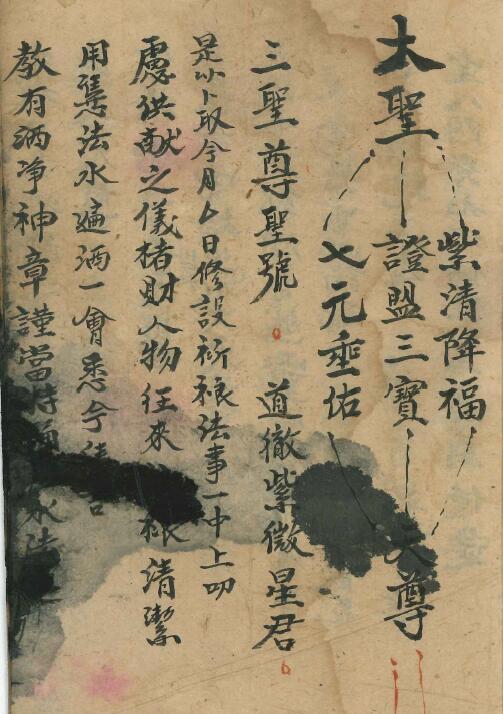 太聖
紫清降福
證盟三寶
七元垂佑
天尊
三聖尊聖號 道徹紫微星君
是以卜取今月厶日修設祈禳法事一中上叩
處供献之儀楮財人物往來 根清潔
用 法水遍洒一會悉令
教有洒净神章謹當持